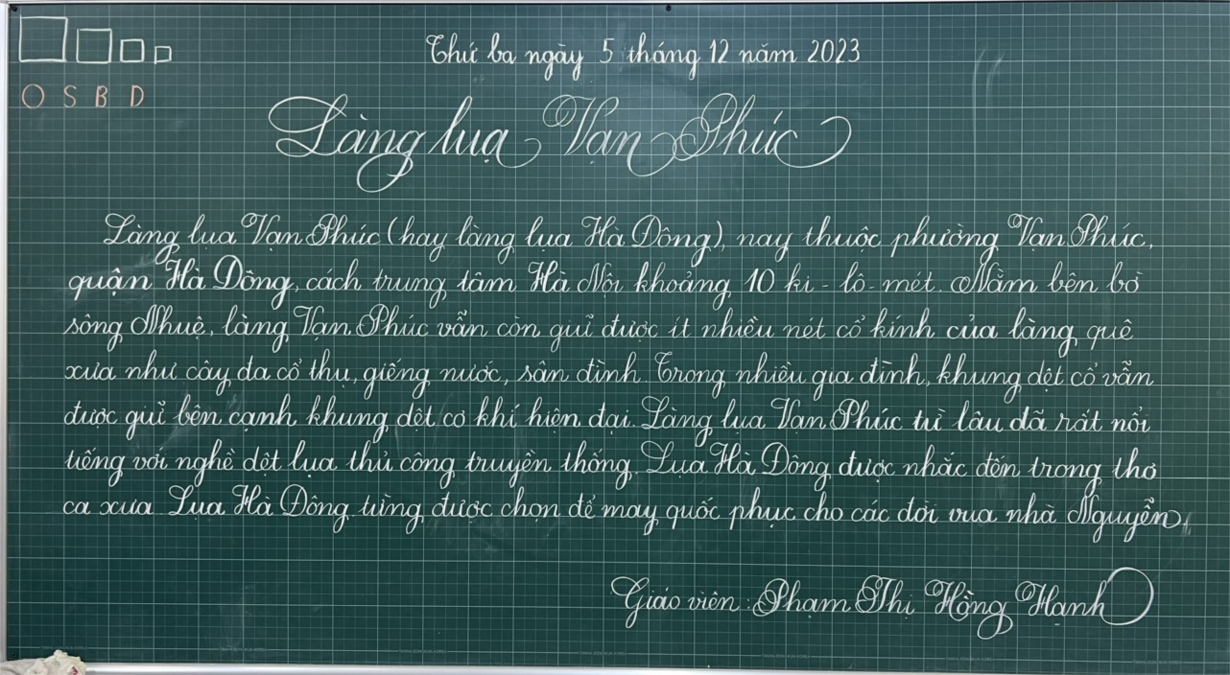 Thứ ba ngày 5 tháng 12 năm 2023
O S B D
Làng lụa Vạn Phúc
Làng lụa Vạn Phúc (hay làng lụa Hà Đông), nay thuộc phường Vạn Phúc,
quận Hà Đông, cách trung tâm Hà Nội khoảng 10 ki - lô - mét. Nằm bên bờ
sông Nhuệ, làng Vạn Phúc vẫn còn giữ được ít nhiều nét cổ kính của làng quê
xưa như cây đa cổ thụ, giếng nước, sân đình. Trong nhiều gia đình, khung dệt cổ vẫn
được giữ bên cạnh khung dệt cơ khí hiện đại. Làng lụa Vạn Phúc từ lâu đã rất nổi
tiếng với nghề dệt lụa thủ công truyền thống. Lụa Hà Đông được nhắc đến trong thơ
ca xưa. Lụa Hà Đông từng được chọn để may quốc phục cho các đời vua nhà Nguyễn.
Giáo viên: Phạm Thị Hồng Hạnh